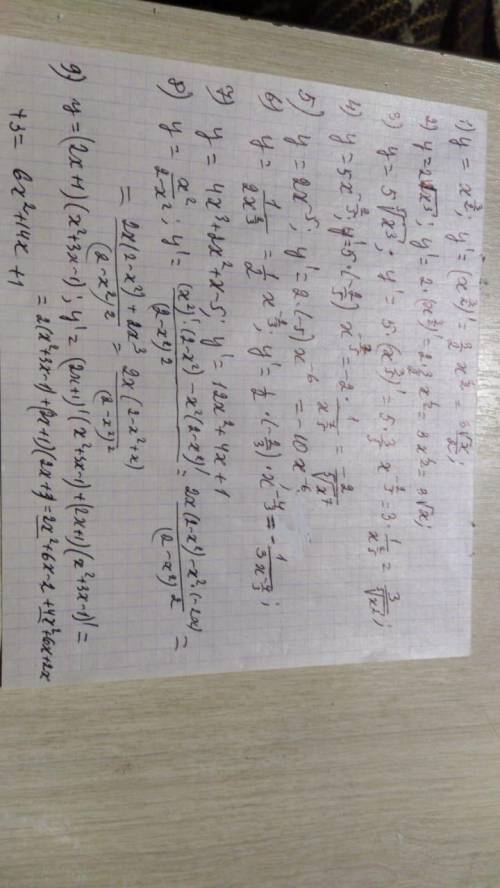 1) y = x^(3/2); y' = (x^(3/2))' = 3/2 x^(1/2) = 3√x/2;
2) y = 2√x³; y' = 2·(x^(3/2))' = 2·3/2 x^(1/2) = 3x^(1/2) = 3√x;
3) y = 5√x³; y' = 5·(x^(3/5))' = 5·3/5 x^(-2/5) = 3·1/x^(2/5) = 3/⁵√x²;
4) y = 5x^(-2/5); y' = 5·(-2/5) x^(-7/5) = -2·1/x^(7/5) = -2/⁵√x⁷
5) y = 2x^(-5); y' = 2·(-5) x^(-6) = -10x^(-6)
6) y = 1/(2x^(2/3)) = 1/2 x^(-2/3); y' = 1/2·(-2/3)·x
7) y = 4x³+2x²+x-5; y' = 12x²+4x+1
8) y = x²/(2-x²); y' = ((x²)'·(2-x²) - x²(2-x²)')/(2-x²)² = (2x(2-x²) - x²·(-2x))/(2-x²)² =
= (2x(2-x²)+2x³)/(2-x²)² = 2x(2-x²+x)/(2-x²)²
9) y = (2x+1)(x²+3x-1); y' = (2x+1)'(x²+3x-1)+(2x+1)(x²+3x-1)' =
= 2(x²+3x-1)+(2x+1)(2x+3) = 2x²+6x-2+4x²+6x+2x
+3 = 6x²+14x+1